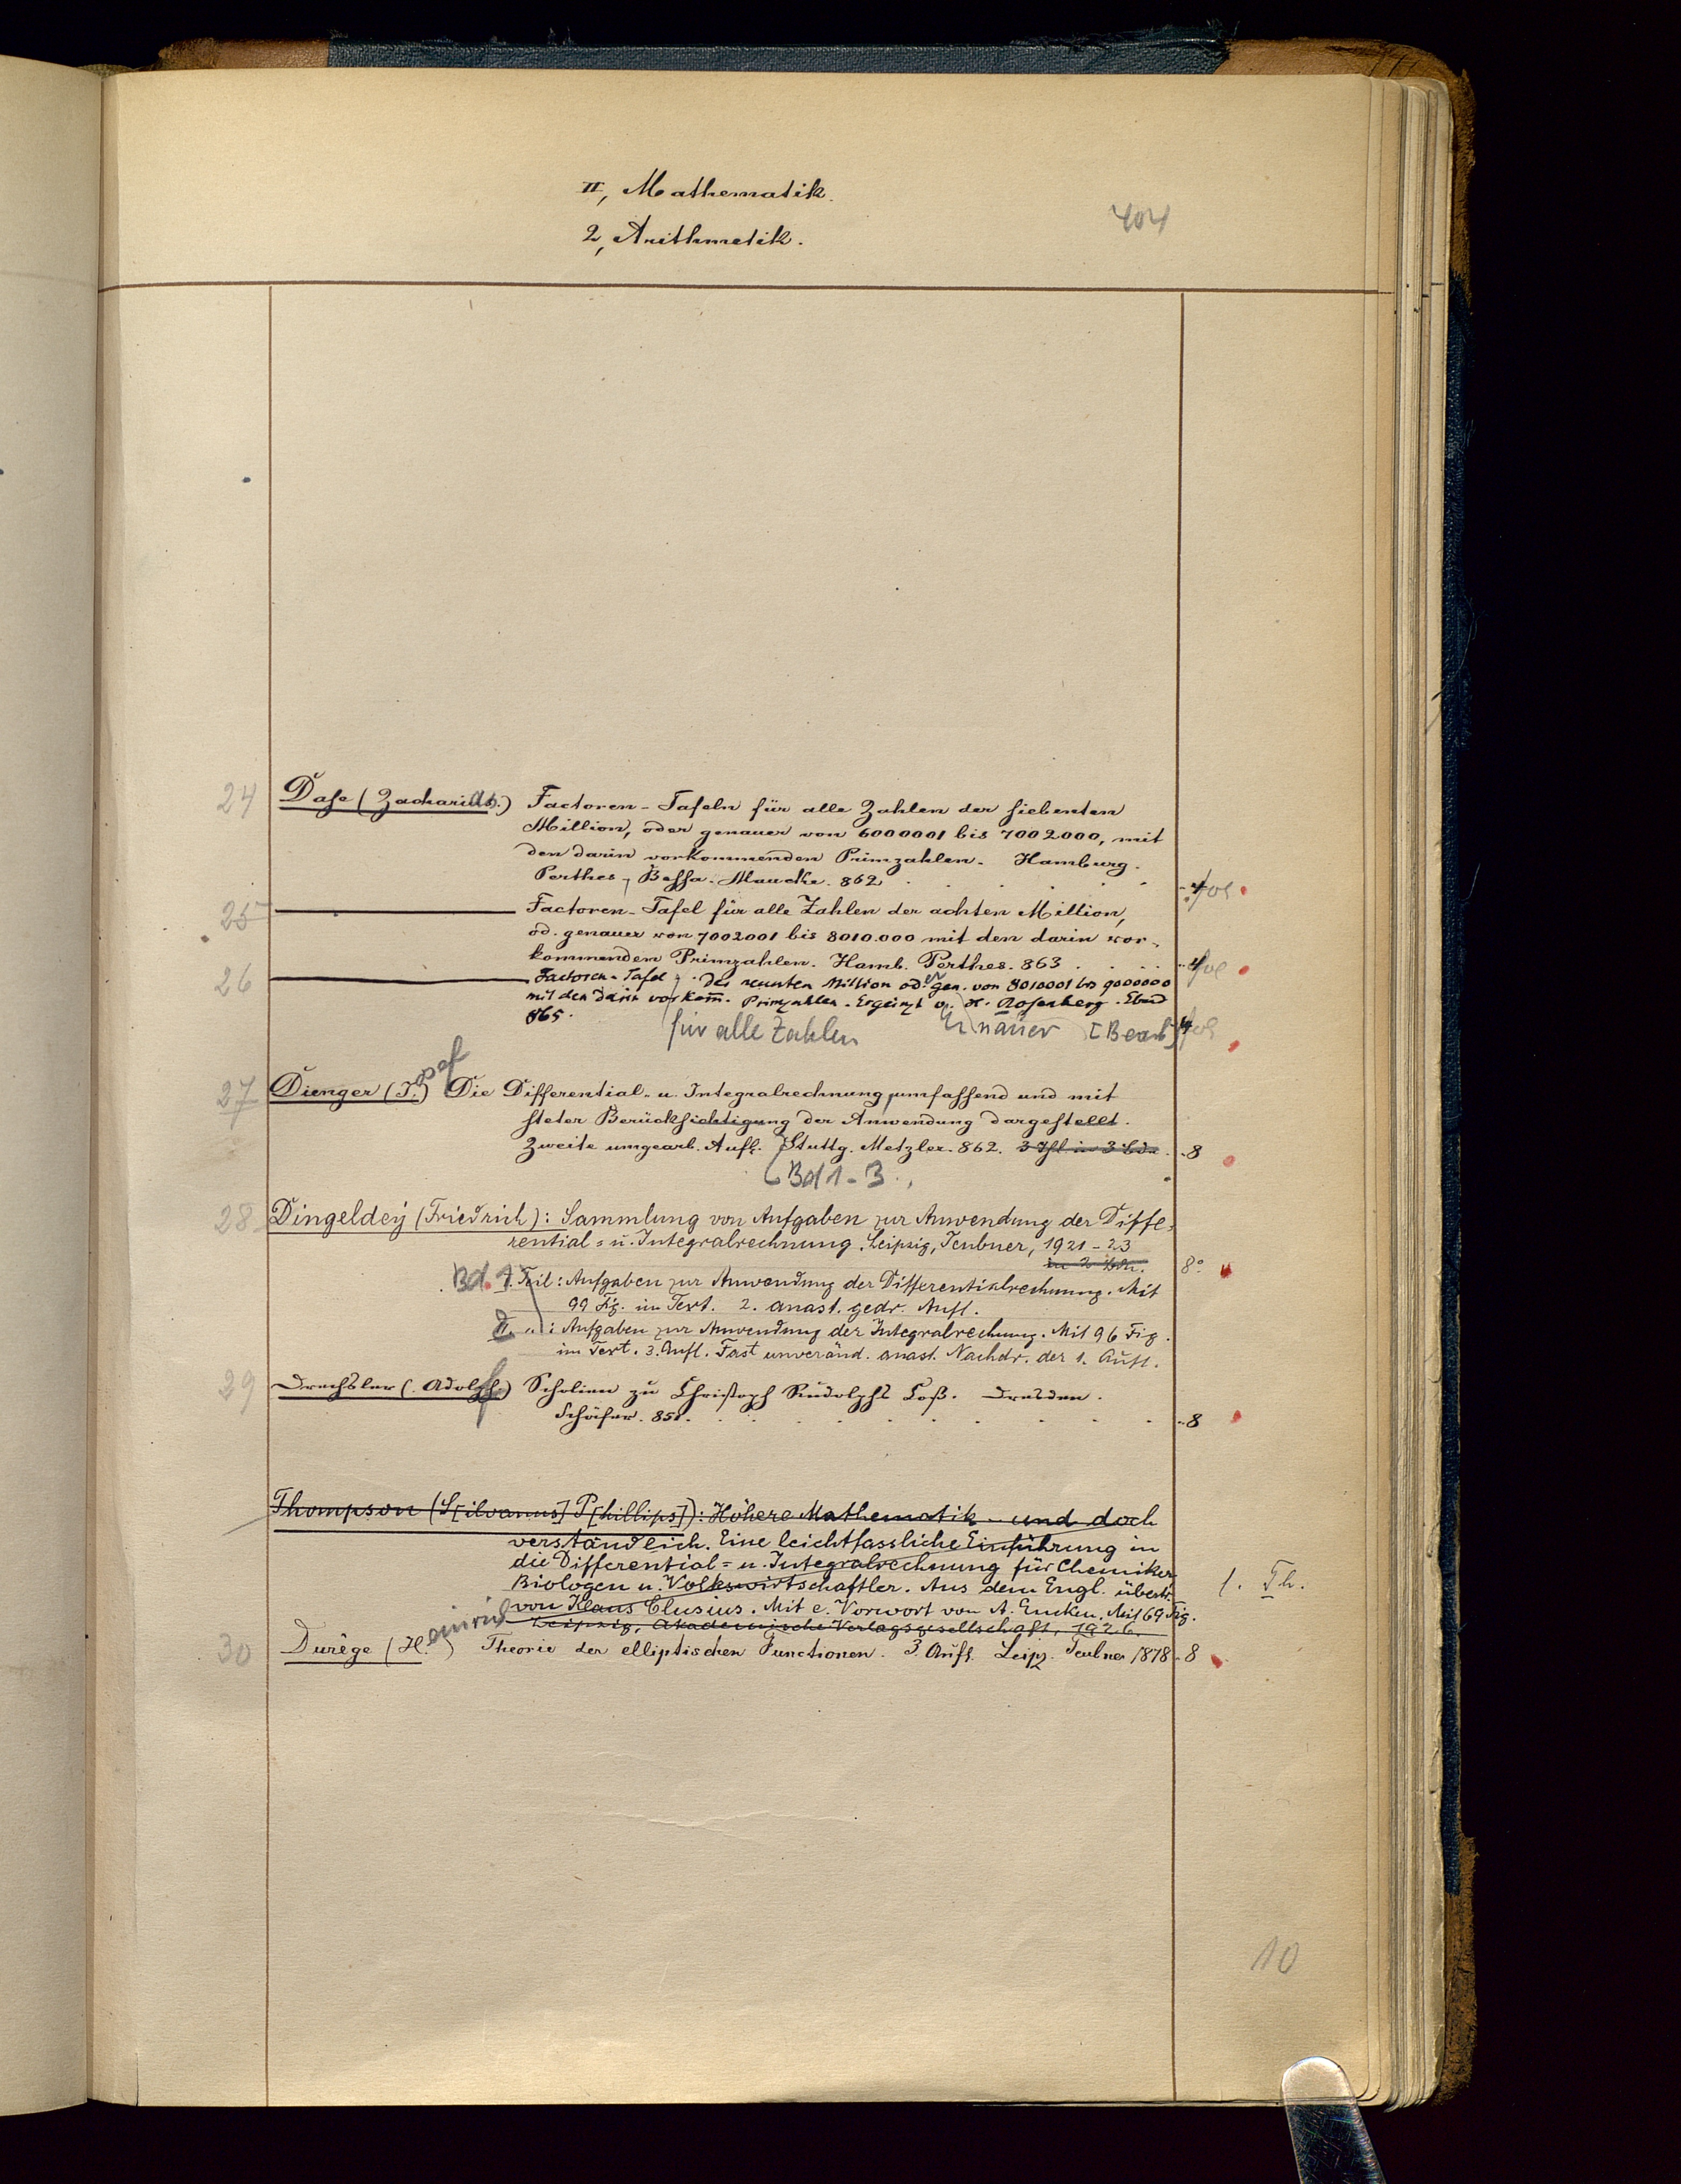 II, Mathematik.
404
2, Arithmetik.
24 Dase (Zacharias.) Factoren-Tafeln für alle Zahlen der siebenten
Million, oder genauer von 6000001 bis 7002000, mit
den darin vorkommenden Primzahlen. Hamburg.
Perthes, Besser. Maucke. 862. fol
25 Factoren-Tafel für alle Zahlen der achten Million,
od. genauer von 7002001 bis 8010.000 mit den darin vor-
kommenden Primzahlen. Hamb. Perthes. 863 fol
26 Factoren-Tafel der neunten Million od. gen. von 8010001 bis 9000000
mit den darin vorkom̄. Primzahlen. Ergänzt v. H. Rosenberg. Ebd
865.
für alle Zahlen [Bearb] 4 fol
27 Dienger (J.osef) Die Differential- u. Integralrechnung umfassend und mit
steter Berücksichtigung der Anwendung dargestellt.
Zweite umgearb. Aufl. Stuttg. Metzler. 862. 3 Thl. in 3 Bdn. 8
Bd 1-3.
28 Dingeldey (Friedrich): Sammlung von Aufgaben zur Anwendung der Diffe-
rential= u. Integralrechnung. Leipzig, Teubner, 1921-23
in 2 Bdn. 8°
Bd. 1. Teil: Aufgaben zur Anwendung der Differentialrechnung. Mit
99 Fig. im Text. 2. anast. gedr. Aufl.
II. „ : Aufgaben zur Anwendung der Integralrechnung. Mit 96 Fig.
im Text. 3. Aufl. Fast unveränd. anast. Nachdr. der 1. Aufl.
29 Drechsler (Adolph) Scholien zu Christoph Rudolphs Coß. Dresden.
Schäfer. 851. 8
Thompson (S[ilvanus] P[hillips]): Höhere Mathematik - und doch
verständlich. Eine leichtfassliche Einführung in
die Differential= u. Integralrechnung für Chemiker
Biologen u. Volkswirtschaftler. Aus dem Engl. übertr.
1. Th.
von Klaus Clusius. Mit e. Vorwort von A. Eucken. Mit 69 Fig.
Leipzig, Akademische Verlagsgesellschaft, 1926.
30 Durège (H.einrich) Theorie der elliptischen Functionen. 3. Aufl. Leipz. Teubner 1878 8
10